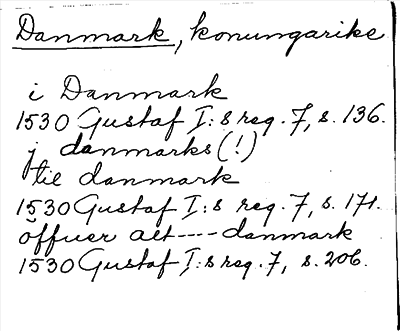 Danmark, konungarike
i Danmark
1530 Gustaf I:s reg. 7, s. 136.
j danmarks (!)
til danmark
1530 Gustaf I:s reg. 7, s. 171.
offuer alt----danmark
1530 Gustaf I:s reg. 7, s. 206.